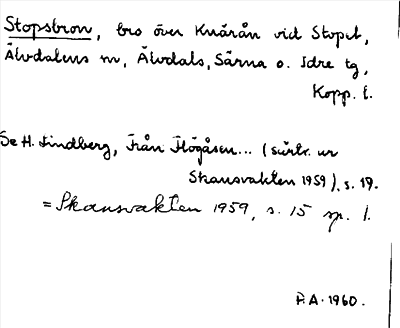 Stopsbron, bro över Knärån vid Stopet,
Älvdalens m, Älvdals, Särna o. Idre tg,
Kopp. l.
Se H. Lindberg, Från Högåsen... (särtr. ur
Skansvakten 1959), s. 19.
= Skansvakten 1959, s. 15 sp. 1.
P.A. 1960.